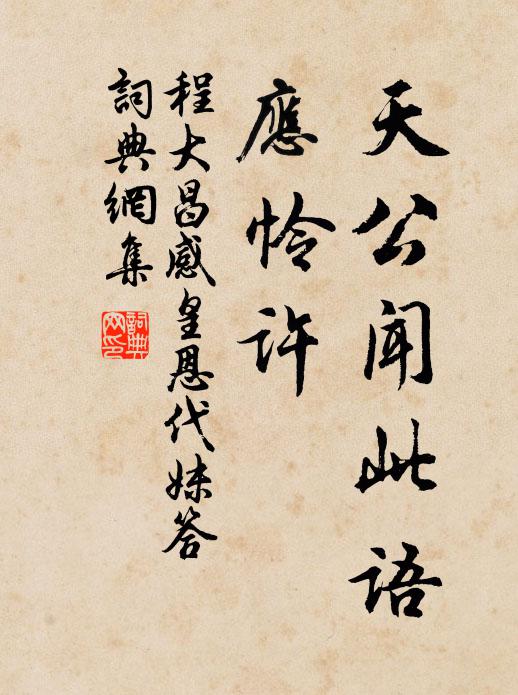 天公闻此语
應怜许
程大昌感皇恩代妹答
詞典網集
詞典网印